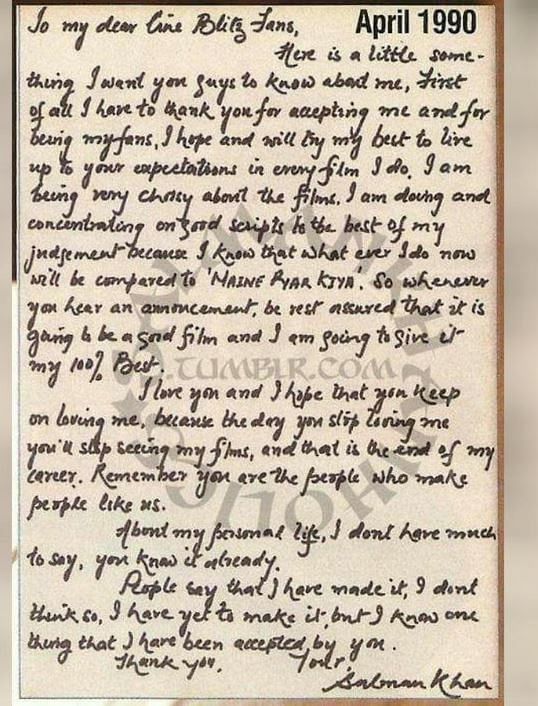 April 1990
To my dear Cine Blitz Fans,
Here is a little some-
thing I want you guys to know about me, First
of all I have to thank you for accepting me and for
being my fans, I hope and will try my best to live
up to your expectations in every film I do, I am
being very choisy about the films, I am doing and
concentrating on good scripts to the best of my
judgement because I know that what ever I do now
will be compared to 'MAINE PYAR KIYA'. So whenever
you hear an announcement, be rest assured that it is
going to be a good film and I am going to give it
my 100% Best.
I love you and I hope that you keep
on loving me, because the day you stop loving me
you'll stop seeing my films, and that is the end of my
career. Remember you are the people who make
people like us.
About my personal life, I dont have much
to say, you know it already.
People say that I have made it, I dont
think so, I have yet to make it, but I know one
thing that I have been accepted by you.
Thank you. Your,
Salman Khan
.TUMBLR.COM